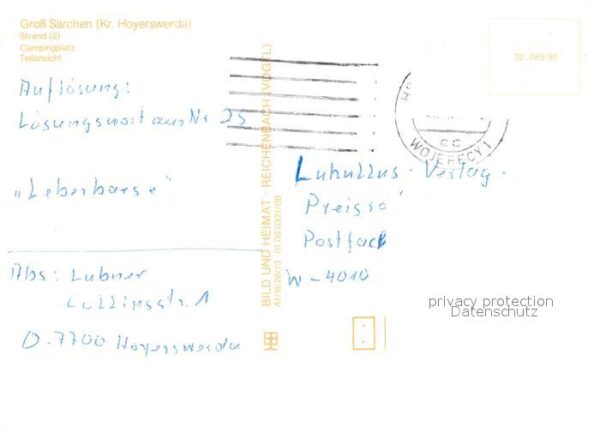 Groß Särchen (Kr. Hoyerswerda)
Strand (2)
Campingplatz
Teilansicht
Auflösung:
Lösungswort aus Nr 25
"Leberkaese"
Abs: Lubner
Collingstr. 1
O-7700 Hoyerswerda
BILD UND HEIMAT · REICHENBACH (VOGTL)
A1/B/26/13 01 06 0321/06
WOJERECY 1
cc
Luhullus-Verlag
Preisrä
Postfach
W-4010
privacy protection
Datenschutz